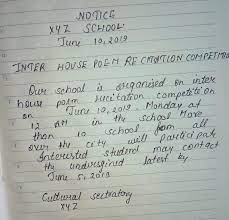 NOTICE
XYZ SCHOOL
June 10, 2019
INTER HOUSE POEM RECITATION COMPETITION
Our school is organised on inter
house potm recitation competition
on June 10, 2019. Monday at
12 AM in the school More
than 10 school from all
over the city will participate
Interested student may contact
the undersigned latest by
June 5, 2019
Cultural sectratory
XYZ